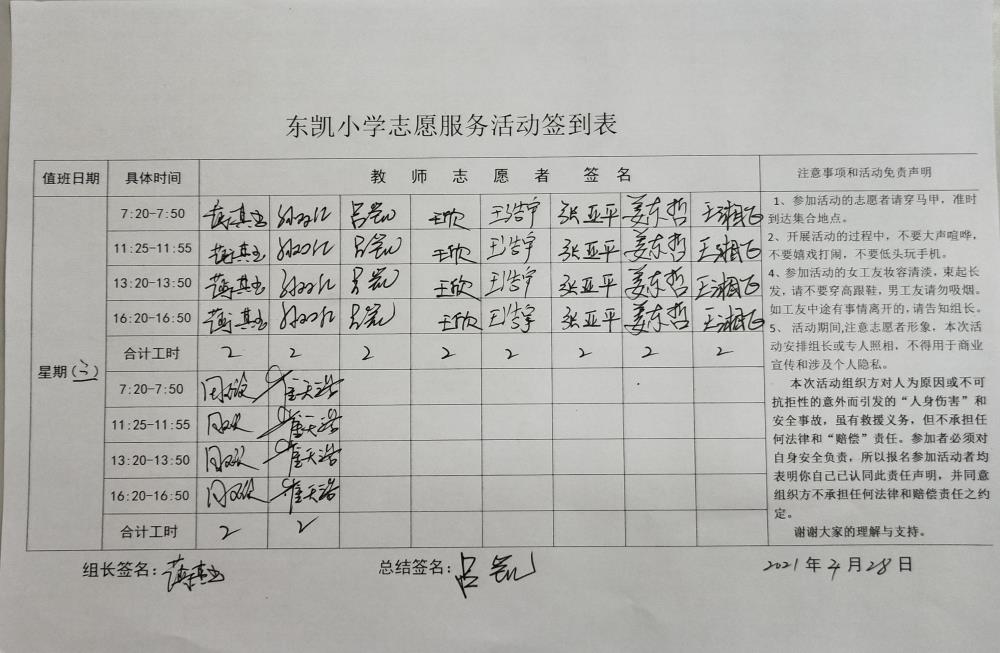 东凯小学志愿服务活动签到表
值班日期 具体时间 教师志愿者签名 注意事项和活动免责声明
7:20-7:50 吕凯 王欣 王浩宇 张亚平 姜东哲 王湘飞
11:25-11:55 吕凯 王欣 王浩宇 张亚平 姜东哲 王湘飞
13:20-13:50 吕凯 王欣 王浩宇 张亚平 姜东哲 王湘飞
16:20-16:50 吕凯 王欣 王浩宇 张亚平 姜东哲 王湘飞
合计工时 2 2 2 2 2 2 2 2
星期(三)
7:20-7:50 崔天浩
11:25-11:55 崔天浩
13:20-13:50 崔天浩
16:20-16:50 崔天浩
合计工时 2 2
1、参加活动的志愿者请穿马甲，准时
到达集合地点。
2、开展活动的过程中，不要大声喧哗，
不要嬉戏打闹，不要低头玩手机。
4、参加活动的女工友妆容清淡，束起长
发，请不要穿高跟鞋，男工友请勿吸烟。
如工友中途有事情离开的,请告知组长。
5、活动期间,注意志愿者形象，本次活
动安排组长或专人照相，不得用于商业
宣传和涉及个人隐私。
本次活动组织方对人为原因或不可
抗拒性的意外而引发的“人身伤害”和
安全事故，虽有救援义务，但不承担任
何法律和“赔偿”责任。参加者必须对
自身安全负责，所以报名参加活动者均
表明你自己已认同此责任声明，并同意
组织方不承担任何法律和赔偿责任之约
定。
谢谢大家的理解与支持。
组长签名： 总结签名：吕凯 2021年4月28日